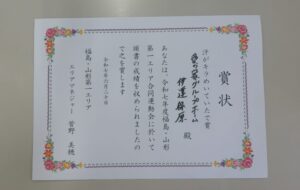 賞状
汗がキラめいていたで賞
愛の家グループホーム
伊達梁川 殿
あなたは、令和七年度福島・山形
第一エリア合同運動会に於いて
頭書の成績を収められましたの
で之を賞します
令和七年六月二十日
福島・山形第一エリア
エリアマネジャー 菅野 美穂